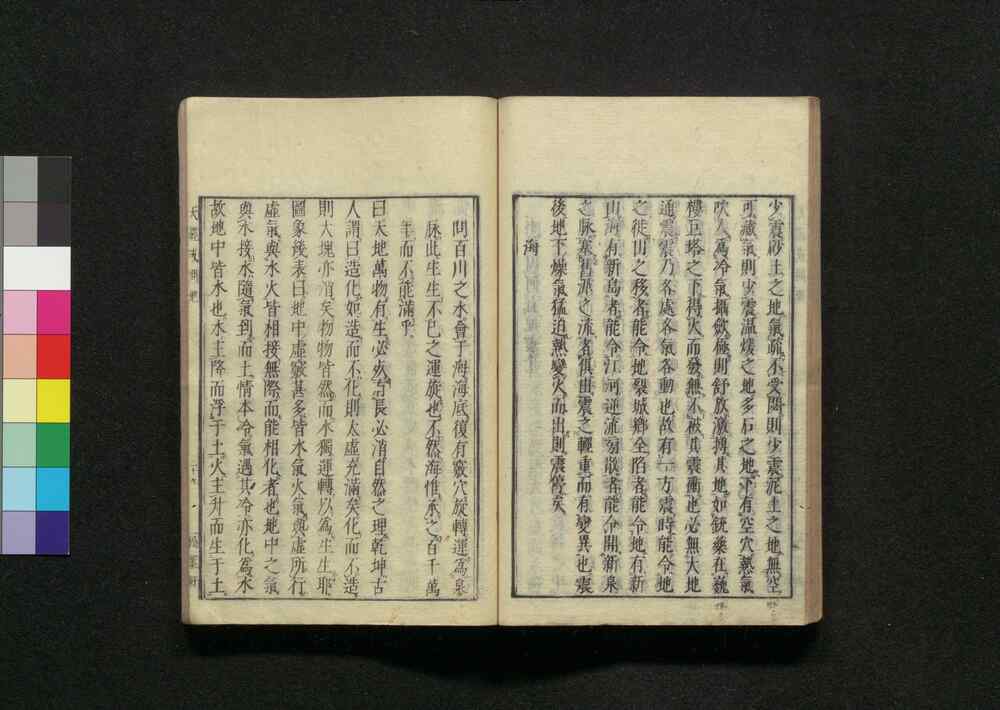 少震砂土之地氣疏不受閉則少震泥土之地無空
可藏氣則少震温煖之地多石之地下有空穴蒸氣
吹入為冷氣攝斂極則舒放激搏其地如銃藥在巍
樓巨塔之下得火而發無不被其震衝也必無大地
通震震乃各處各氣各動也故有一方震時能令地
之徙山之移者能令地裂城鄉全陷者能令地有新
山海有新島者能令江河逆流易散者能令開新泉
之脉塞舊源之流者俱由震之輕重而有變異也震
後地下燥氣猛迫熱變火而出則震停矣
海
問百川之水會于海海底復有竅穴旋轉運為泉
脉此生生不已之運旋也不然海惟承之百千萬
年而不能滿乎
曰天地萬物有生必有長必消自然之理乾坤古
人謂曰造化如造而不化則太虛充滿矣化而不造
則大塊亦消矣物物皆然而水獨運轉以為生生耶
圖象後表曰地中虛竅甚多皆水氣火氣與虛所行
虛氣與水火皆相接無際而能相化者也地中之氣
與水接水隨氣到而土情本冷氣遇其冷亦化為水
故地中皆水也水主降而浮于土火主升而生于土